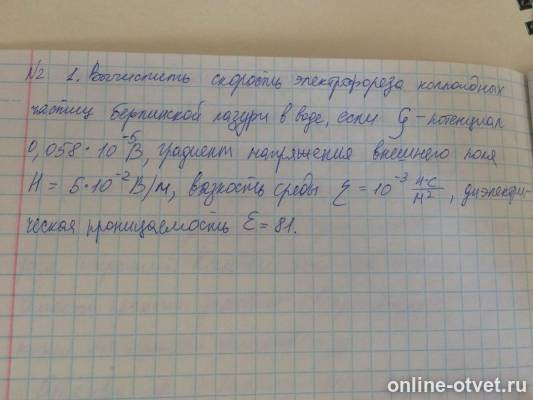 №2 1. Вычислить скорость электрофореза коллоидных
частиц берлинской лазури в воде, если ζ-потенциал
0,058·10⁻⁵В, градиент напряжения внешнего поля
H = 5·10⁻² В/м, вязкость среды η = 10⁻³ н·с/м², диэлектри-
ческая проницаемость ε = 81.
online-otvet.ru